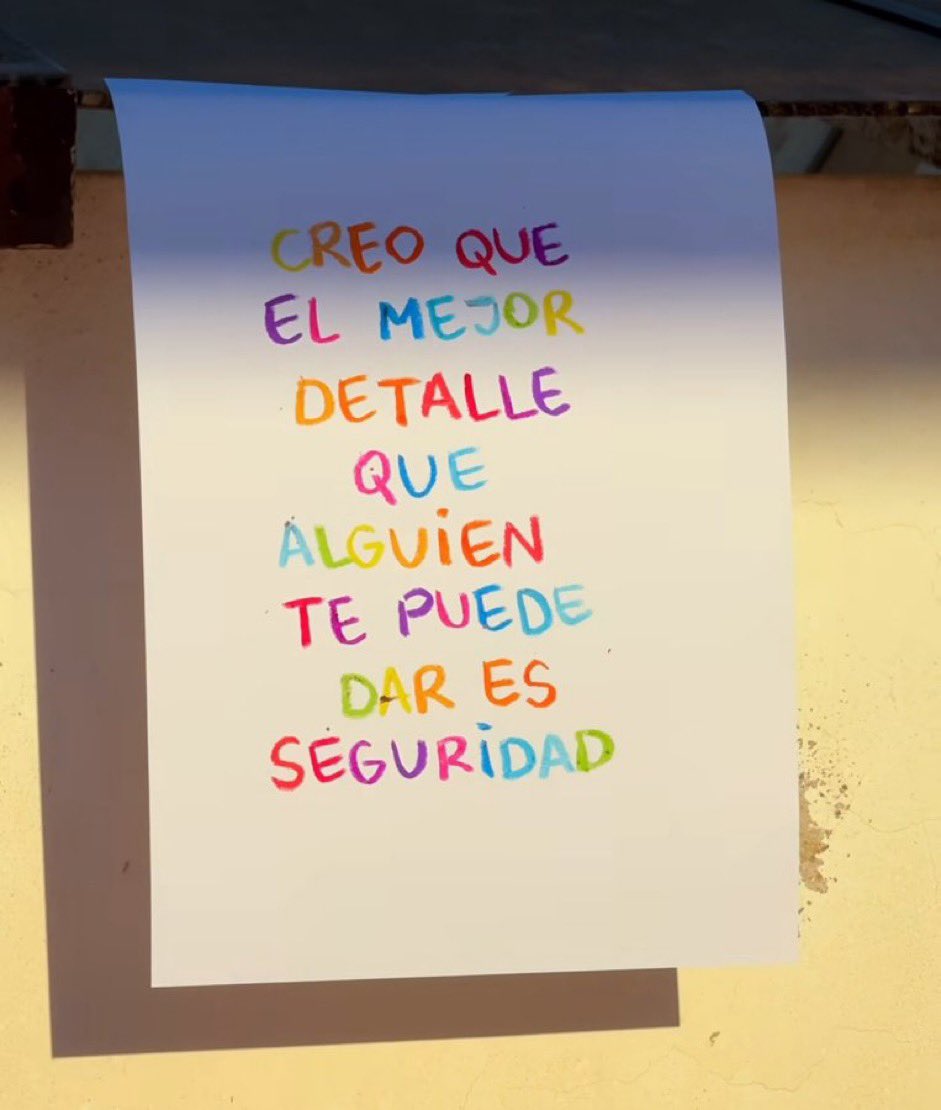 CREO QUE
EL MEJOR
DETALLE
QUE
ALGUiEN
TE PUEDE
DAR ES
SEGURiDAD